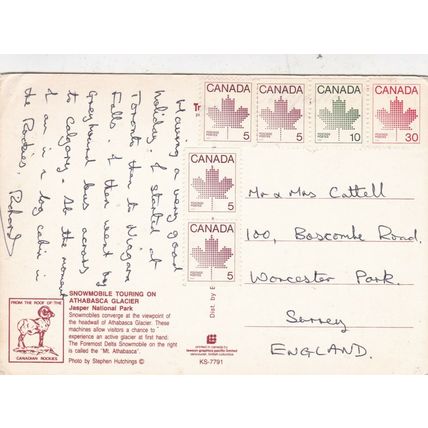 Having a very good
holiday. I started at
Toronto then to Niagara
Falls. I then went by
Greyhound bus across
to Calgary - At the moment
I am in a log cabin in
the Rockies, Richard
CANADA
5
POSTAGE
POSTES
CANADA
5
POSTAGE
POSTES
CANADA
10
POSTAGE
POSTES
CANADA
30
POSTAGE
POSTES
CANADA
5
POSTAGE
POSTES
CANADA
5
POSTAGE
POSTES
Tr
Mr & Mrs Cattell
100, Boscombe Road.
Worcester Park.
Surrey
ENGLAND.
Dist. by E
FROM THE ROOF OF THE
CANADIAN ROCKIES
SNOWMOBILE TOURING ON
ATHABASCA GLACIER
Jasper National Park
Snowmobiles converge at the viewpoint of
the headwall of Athabasca Glacier. These
machines allow visitors a chance to
experience an active glacier at first hand.
The Foremost Delta Snowmobile on the right
is called the "Mt. Athabasca".
Photo by Stephen Hutchings ©
printed in canada by
lawson graphics pacific limited
vancouver, british columbia
KS-7791